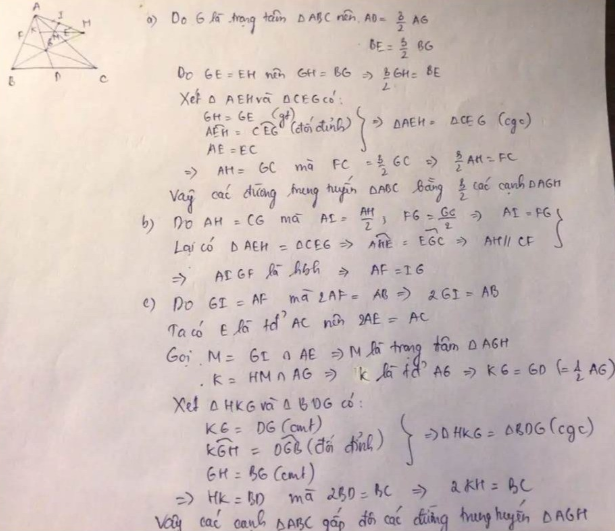 A
J
F
K
E
M
H
G
B
D
C
a) Do G là trọng tâm ΔABC nên AD = 3/2 AG
BE = 3/2 BG
Do GE = EH nên GH = BG => 3/2 GH = BE
Xét Δ AEH và ΔCEG có:
GH = GE (gt)
AEH = CEG (đối đỉnh) } => ΔAEH = ΔCEG (cgc)
AE = EC
=> AH = GC mà FC = 3/2 GC => 3/2 AH = FC
Vậy các đường trung tuyến ΔABC bằng 3/2 các cạnh ΔAGH
b) Do AH = CG mà AI = AH/2; FG = GC/2 => AI = FG
Lại có Δ AEH = ΔCEG => AHE = EGC => AH // CF }
=> AIGF là hbh => AF = IG
c) Do GI = AF mà 2AF = AB => 2GI = AB
Ta có E là tđ' AC nên 2AE = AC
Gọi M = GI ∩ AE => M là trọng tâm ΔAGH
K = HM ∩ AG => K là tđ' AG => KG = GD (= 1/2 AG)
Xét Δ HKG và Δ BDG có:
KG = DG (cmt)
KGH = DGB (đối đỉnh) } => Δ HKG = ΔBDG (cgc)
GH = BG (cmt)
=> HK = BD mà 2BD = BC => 2KH = BC
Vậy các cạnh ΔABC gấp đôi các đường trung tuyến ΔAGH